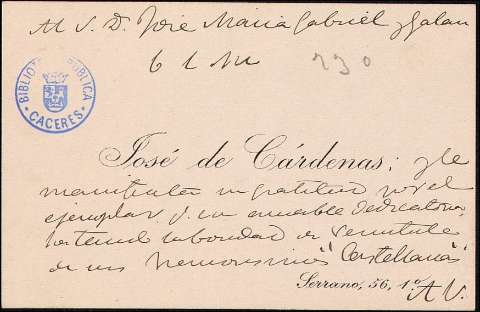 Al S. D. José María Gabriel y Galan
b l m
230
BIBLIOTECA PUBLICA
CACERES
José de Cárdenas; y le
manifiesta su gratitud por el
ejemplar y su amable dedicatoria
tenido la bondad de remitirle
de sus "Castellanas"
Serrano, 56, 1º